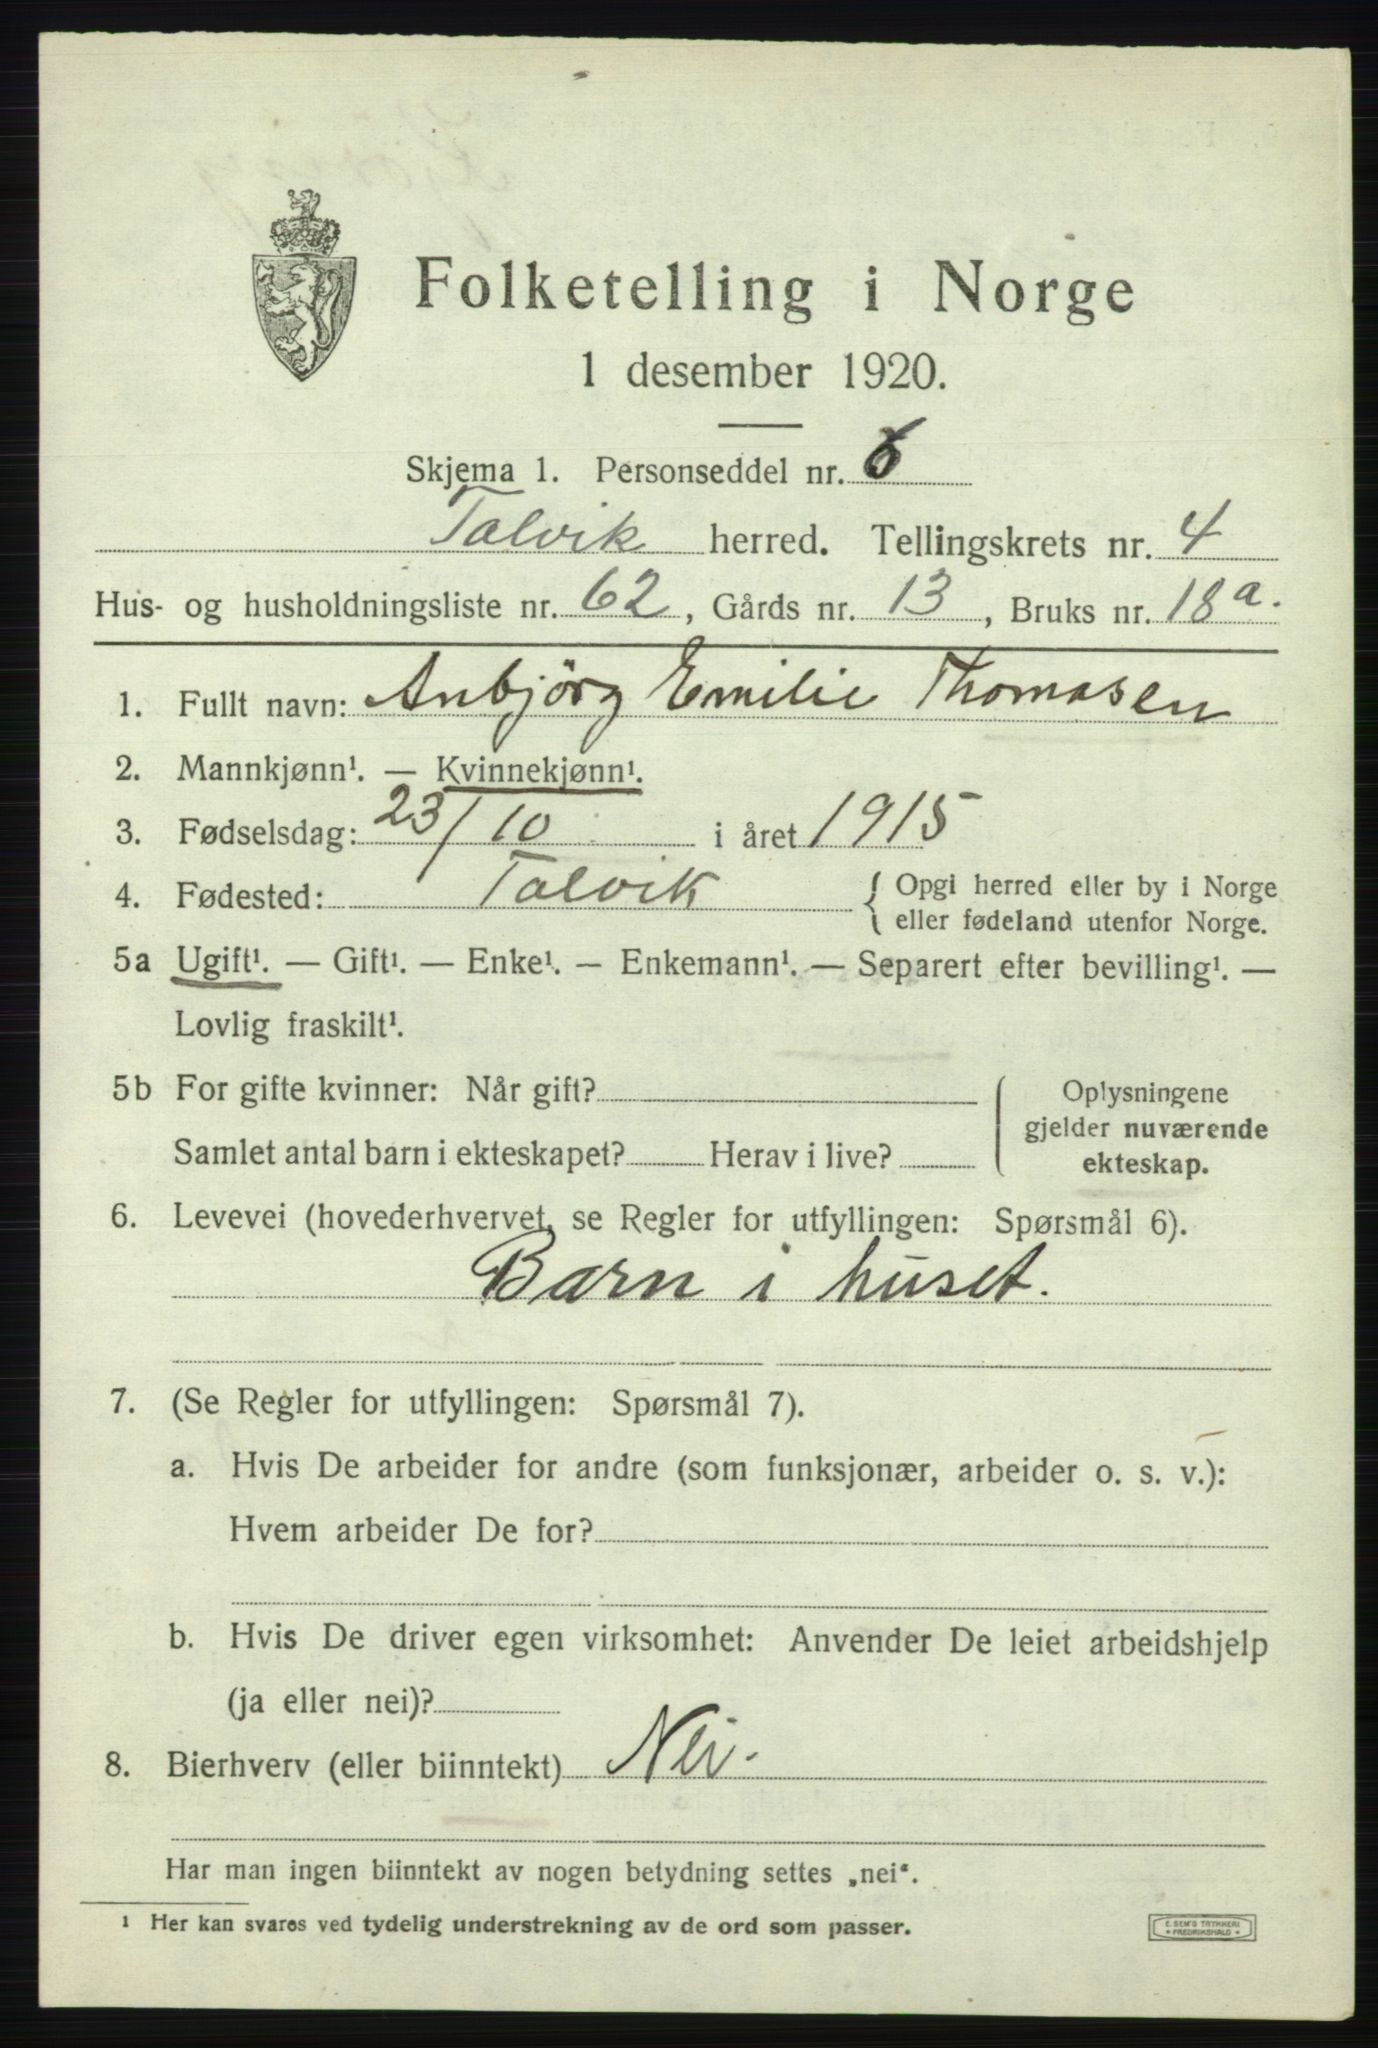 Folketelling i Norge
1 desember 1920.
Skjema 1. Personseddel nr. 6
Talvik herred. Tellingskrets nr. 4
Hus- og husholdningsliste nr. 62, Gårds nr. 13, Bruks nr. 18a.
1. Fullt navn: Anbjörg Emilie Thomasen
2. Mannkjønn¹. — Kvinnekjønn¹.
3. Fødselsdag: 23/10 i året 1915
4. Fødested: Talvik { Opgi herred eller by i Norge
eller fødeland utenfor Norge.
5a Ugift¹. — Gift¹. — Enke¹. — Enkemann¹. — Separert efter bevilling¹. —
Lovlig fraskilt¹.
5b For gifte kvinner: Når gift?
Samlet antal barn i ekteskapet? Herav i live?
Oplysningene
gjelder nuværende
ekteskap.
6. Levevei (hovederhvervet, se Regler for utfyllingen: Spørsmål 6).
Barn i huset.
7. (Se Regler for utfyllingen: Spørsmål 7).
a. Hvis De arbeider for andre (som funksjonær, arbeider o. s. v.):
Hvem arbeider De for?
b. Hvis De driver egen virksomhet: Anvender De leiet arbeidshjelp
(ja eller nei)?
8. Bierhverv (eller biinntekt) Nei.
Har man ingen biinntekt av nogen betydning settes „nei“.
¹ Her kan svares ved tydelig understrekning av de ord som passer.
E. SEM'S TRYKKERI
* FREDRIKSHALD *